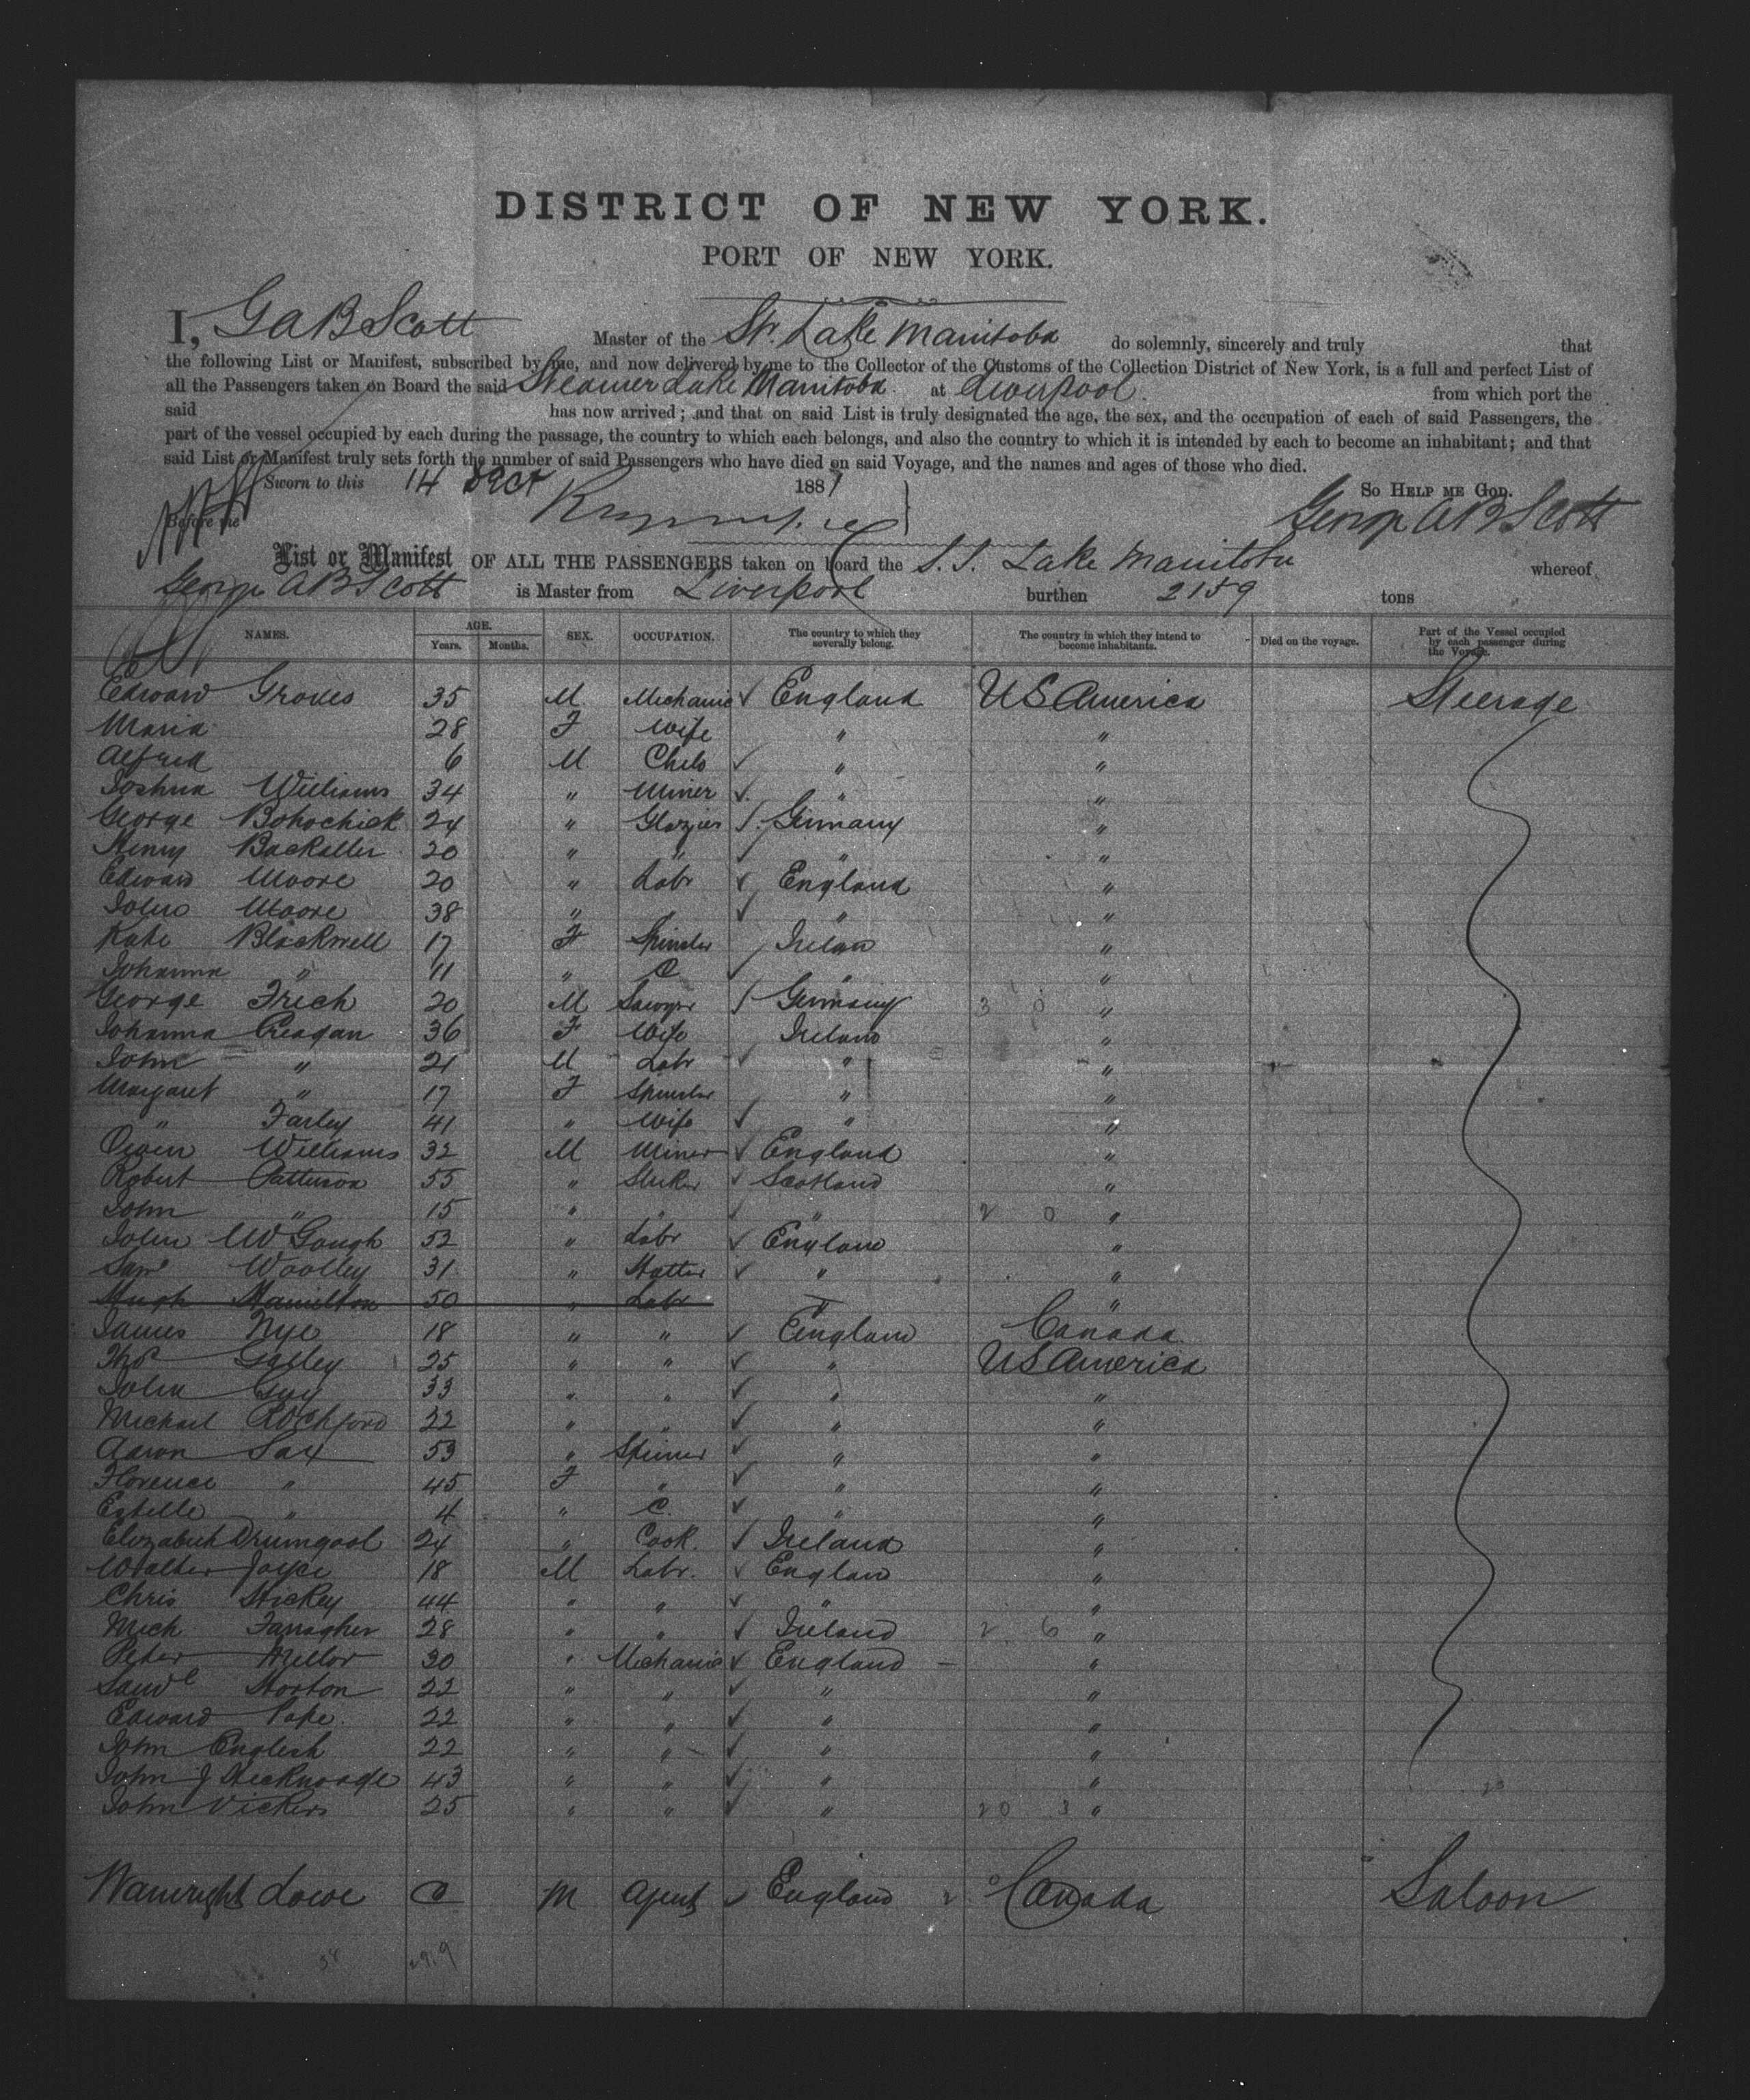 DISTRICT OF NEW YORK.
PORT OF NEW YORK.
I, G A B Scott Master of the Str. Lake Manitoba do solemnly, sincerely and truly that
the following List or Manifest, subscribed by me, and now delivered by me to the Collector of the Customs of the Collection District of New York, is a full and perfect List of
all the Passengers taken on Board the said Steamer Lake Manitoba at Liverpool from which port the
said has now arrived; and that on said List is truly designated the age, the sex, and the occupation of each of said Passengers, the
part of the vessel occupied by each during the passage, the country to which each belongs, and also the country to which it is intended by each to become an inhabitant; and that
said List or Manifest truly sets forth the number of said Passengers who have died on said Voyage, and the names and ages of those who died.
Sworn to this 14 1881 So HELP ME GOD.
Before me George A B Scott
List or Manifest OF ALL THE PASSENGERS taken on board the S.S. Lake Manitoba whereof
George A B Scott is Master from Liverpool burthen 2159 tons
NAMES. AGE. Years. Months. SEX. OCCUPATION. The country to which they severally belong. The country in which they intend to become inhabitants. Died on the voyage. Part of the Vessel occupied by each passenger during the Voyage.
Edward Groves 35 M Mechanic ✓ England US America Steerage
Maria 28 F Wife " "
Alfred 6 M Child ✓ " "
Joshua Williams 34 " Miner ✓ " "
George Bohochick 24 " Glazier ✓ Germany "
Henry Backeller 20 " " ✓ " "
Edward Moore 20 " Labr ✓ England "
John Moore 38 " " ✓ " "
Kate Blackwell 17 F Spinster ✓ Irelan "
Johanna " 11 " C ✓ " "
George Frech 20 M Sawyer ✓ Germany 3 0 "
Johanna Creagan 36 F Wife Ireland "
John " 21 M Labr ✓ " "
Margaret " 17 F Spinster " "
" Farley 41 " Wife ✓ " "
Owen Williams 32 M Miner ✓ England "
Robert Patterson 55 " ✓ Scotland "
John " 15 " " ✓ " 2 0 "
John W Gough 52 " Labr ✓ England "
Saml Woolley 31 " Hatter ✓ " "
Hugh Hamilton 50 " Labr " "
James Nye 18 " " ✓ England Canada
Thos Galley 25 " " ✓ " US America
John Guy 33 " " ✓ " "
Michael Rochford 22 " " ✓ " "
Aaron Sax 53 " Spinner ✓ " "
Florence " 45 F " ✓ " "
Estelle " 4 " C. ✓ " "
Elizabeth Drumgool 24 " Cook. ✓ Ireland "
Walter Joyce 18 M Labr. ✓ England "
Chris Hickey 44 " " ✓ " "
Mich Farragher 28 " " ✓ Ireland 2 6 "
Peter Mellor 30 " Mechanic ✓ England "
Saml Horton 22 " " ✓ " "
Edward Pope 22 " " ✓ " "
John English 22 " " ✓ " "
John J 43 " " ✓ " "
John Vickers 25 " " ✓ " 20 3 "
Wainwright Lowe M Agent ✓ England Canada Saloon